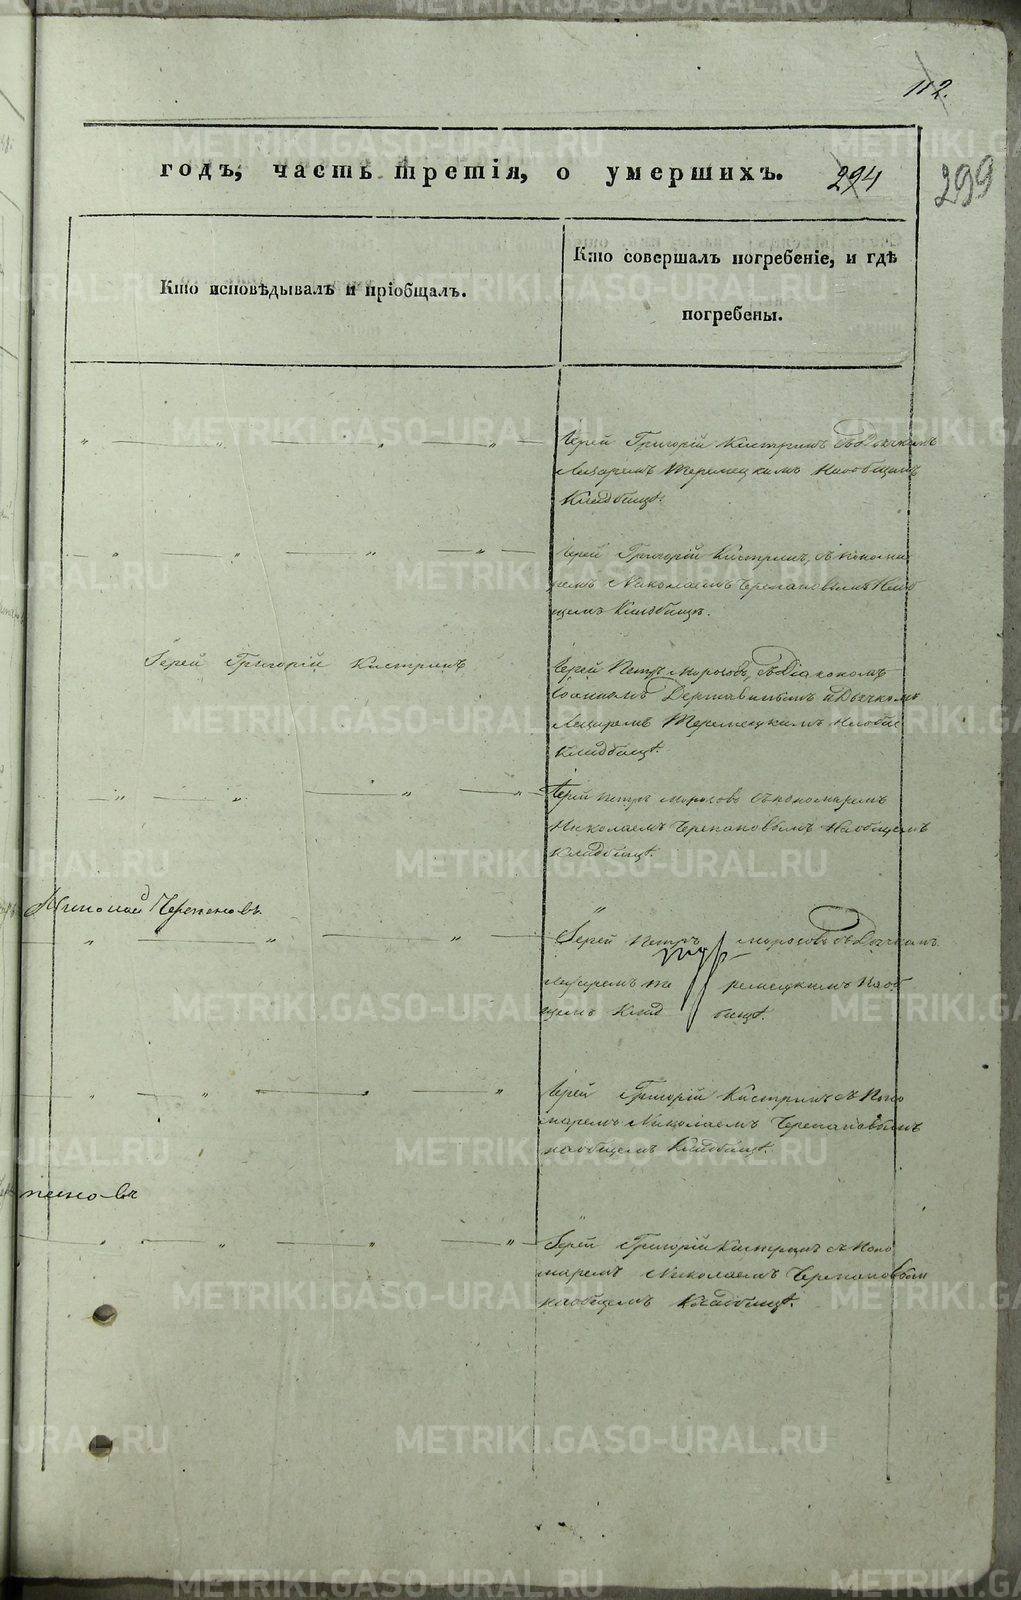 112.
годъ, часть третія, о умершихъ. 294
299
Кто исповѣдывалъ и пріобщалъ.
Кто совершалъ погребеніе, и гдѣ
погребены.
Іерей Григорій Кистринъ съ Дьячкомъ
Лазаремъ Теремецкимъ Наобщемъ
Кладбищѣ.
Іерей Григорій Кистринъ, съ понома
ремъ Николаемъ Черепановымъ Нао
щемъ Кладбищѣ.
Іерей Григорій Кистринъ
Іерей Петръ Морозовъ, съ Діакономъ
Іоанномъ Державинымъ и Дьячкомъ
Лазаремъ Теремецкимъ
Кладбищѣ.
Іерей Петръ Морозовъ съ пономаремъ
Николаемъ Черепановымъ Наобщемъ
Кладбищѣ.
Николай Черепановъ.
Іерей Петръ Морозовъ съ Дьячкомъ
Лазаремъ Те ремецкимъ Наоб
щемъ Клад бищѣ.
Іерей Григорій Кистринъ съ Поно
маремъ Николаемъ Черепановымъ
наобщемъ Кладбищѣ.
пановъ
Іерей Григорій Кистринъ съ Поно
маремъ Николаемъ Черепановым
наобщемъ Кладбищѣ.
METRIKI.GASO-URAL.RU